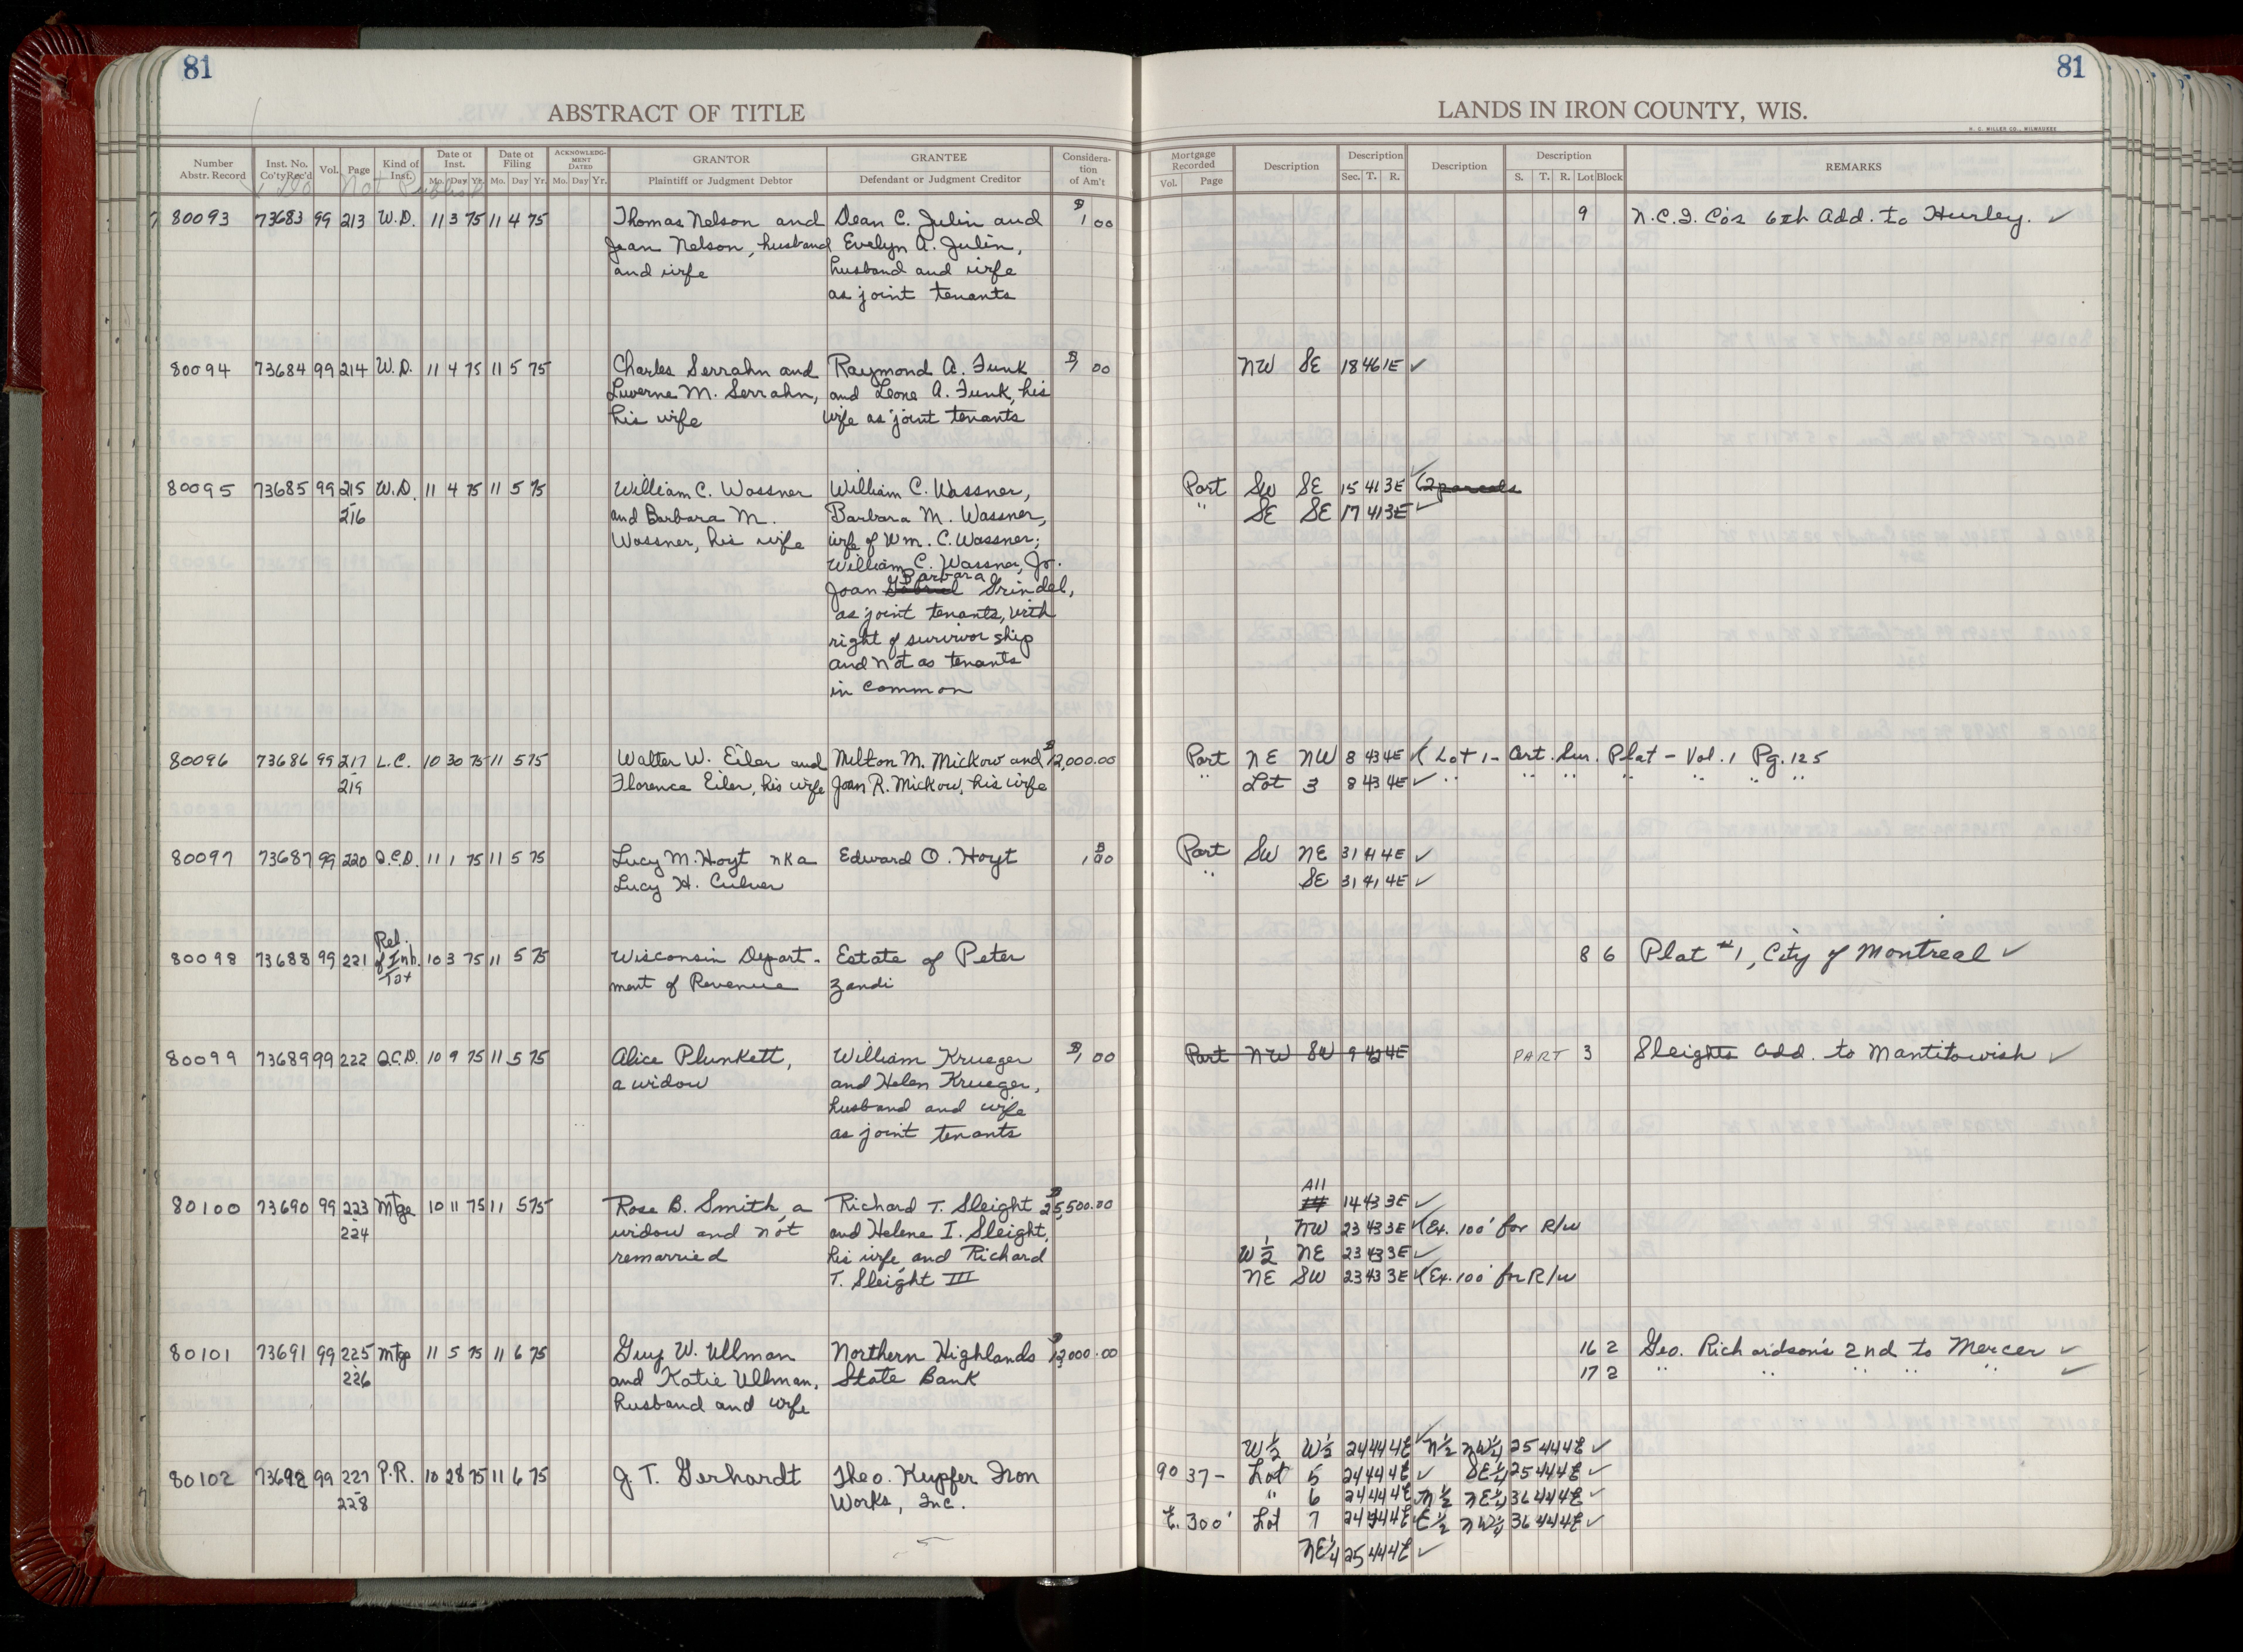 81
81
ABSTRACT OF TITLE
LANDS IN IRON COUNTY, WIS.
H. C. MILLER CO., MILWAUKEE
Number Abstr. Record Inst. No. Co'ty Rec'd Vol. Page Kind of Inst. Date of Inst. Mo. Day Yr. Date of Filing Mo. Day Yr. ACKNOWLEDGMENT DATED Mo. Day Yr. GRANTOR Plaintiff or Judgment Debtor GRANTEE Defendant or Judgment Creditor Consideration of Am't
Mortgage Recorded Vol. Page Description Description Sec. T. R. Description Description S. T. R. Lot Block REMARKS
80093 73683 99 213 W.D. 11 3 75 11 4 75 Thomas Nelson and Dean C. Julin and $1 00 9 N.C.I. Co's 6th Add. to Hurley. ✓
Joan Nelson, husband Evelyn A. Julin,
and wife husband and wife
as joint tenants
80094 73684 99 214 W.D. 11 4 75 11 5 75 Charles Serrahn and Raymond A. Funk $1 00 NW SE 18 46 1E ✓
Luverne M. Serrahn, and Leone A. Funk, his
his wife wife as joint tenants
80095 73685 99 215 W.D. 11 4 75 11 5 75 William C. Wassner William C. Wassner, Part SW SE 15 41 3E ✓ (2 parcels
- 216 and Barbara M. Barbara M. Wassner, " SE SE 17 41 3E ✓
Wassner, his wife wife of Wm. C. Wassner;
William C. Wassner, Jr.
Barbara
Joan Gabriel Grindel,
as joint tenants, with
right of survivor ship
and not as tenants
in common
80096 73686 99 217 L.C. 10 30 75 11 5 75 Walter W. Eiler and Milton M. Mickow and $12,000.00 Part NE NW 8 43 4E ✓ Lot 1 - Cert. Sur. Plat - Vol. 1 Pg. 125
- 219 Florence Eiler, his wife Joan R. Mickow, his wife " Lot 3 8 43 4E ✓ " " " " " " "
80097 73687 99 220 Q.C.D. 11 1 75 11 5 75 Lucy M. Hoyt nka Edward O. Hoyt $1.00 Part SW NE 31 41 4E ✓
Lucy H. Culver " SE 31 41 4E ✓
80098 73688 99 221 Rel. of Inh. Tax 10 3 75 11 5 75 Wisconsin Depart- Estate of Peter 8 6 Plat #1, City of Montreal ✓
ment of Revenue Zandi
80099 73689 99 222 Q.C.D. 10 9 75 11 5 75 Alice Plunkett, William Krueger $1 00 Part NW SW 9 42 4E PART 3 Sleights Add. to Manitowish ✓
a widow and Helen Krueger,
husband and wife
as joint tenants
80100 73690 99 223 Mtge 10 11 75 11 5 75 Rose B. Smith, a Richard T. Sleight $25,500.00 All 14 43 3E ✓
- 224 widow and not and Helene I. Sleight, NW 23 43 3E ✓ (Ex. 100' for R/W
remarried his wife and Richard W 1/2 NE 23 43 3E ✓
T. Sleight III NE SW 23 43 3E ✓ (Ex. 100' for R/W
80101 73691 99 225 Mtge 11 5 75 11 6 75 Guy W. Ullman Northern Highlands $12,000.00 16 2 Geo. Richardson's 2nd to Mercer ✓
- 226 and Katie Ullman, State Bank 17 2 " " " " " ✓
husband and wife
W 1/2 W 1/2 24 44 4E ✓ N 1/2 NW 1/4 25 44 4E ✓
80102 73692 99 227 P.R. 10 28 75 11 6 75 J. T. Gerhardt Theo. Kupfer Iron 90 37 - Lot 5 24 44 4E ✓ SE 1/4 25 44 4E ✓
- 228 Works, Inc. " 6 24 44 4E N 1/2 NE 1/4 36 44 4E ✓
E. 300' Lot 7 24 44 4E ✓ E 1/2 NW 1/4 36 44 4E ✓
NE 1/4 25 44 4E ✓